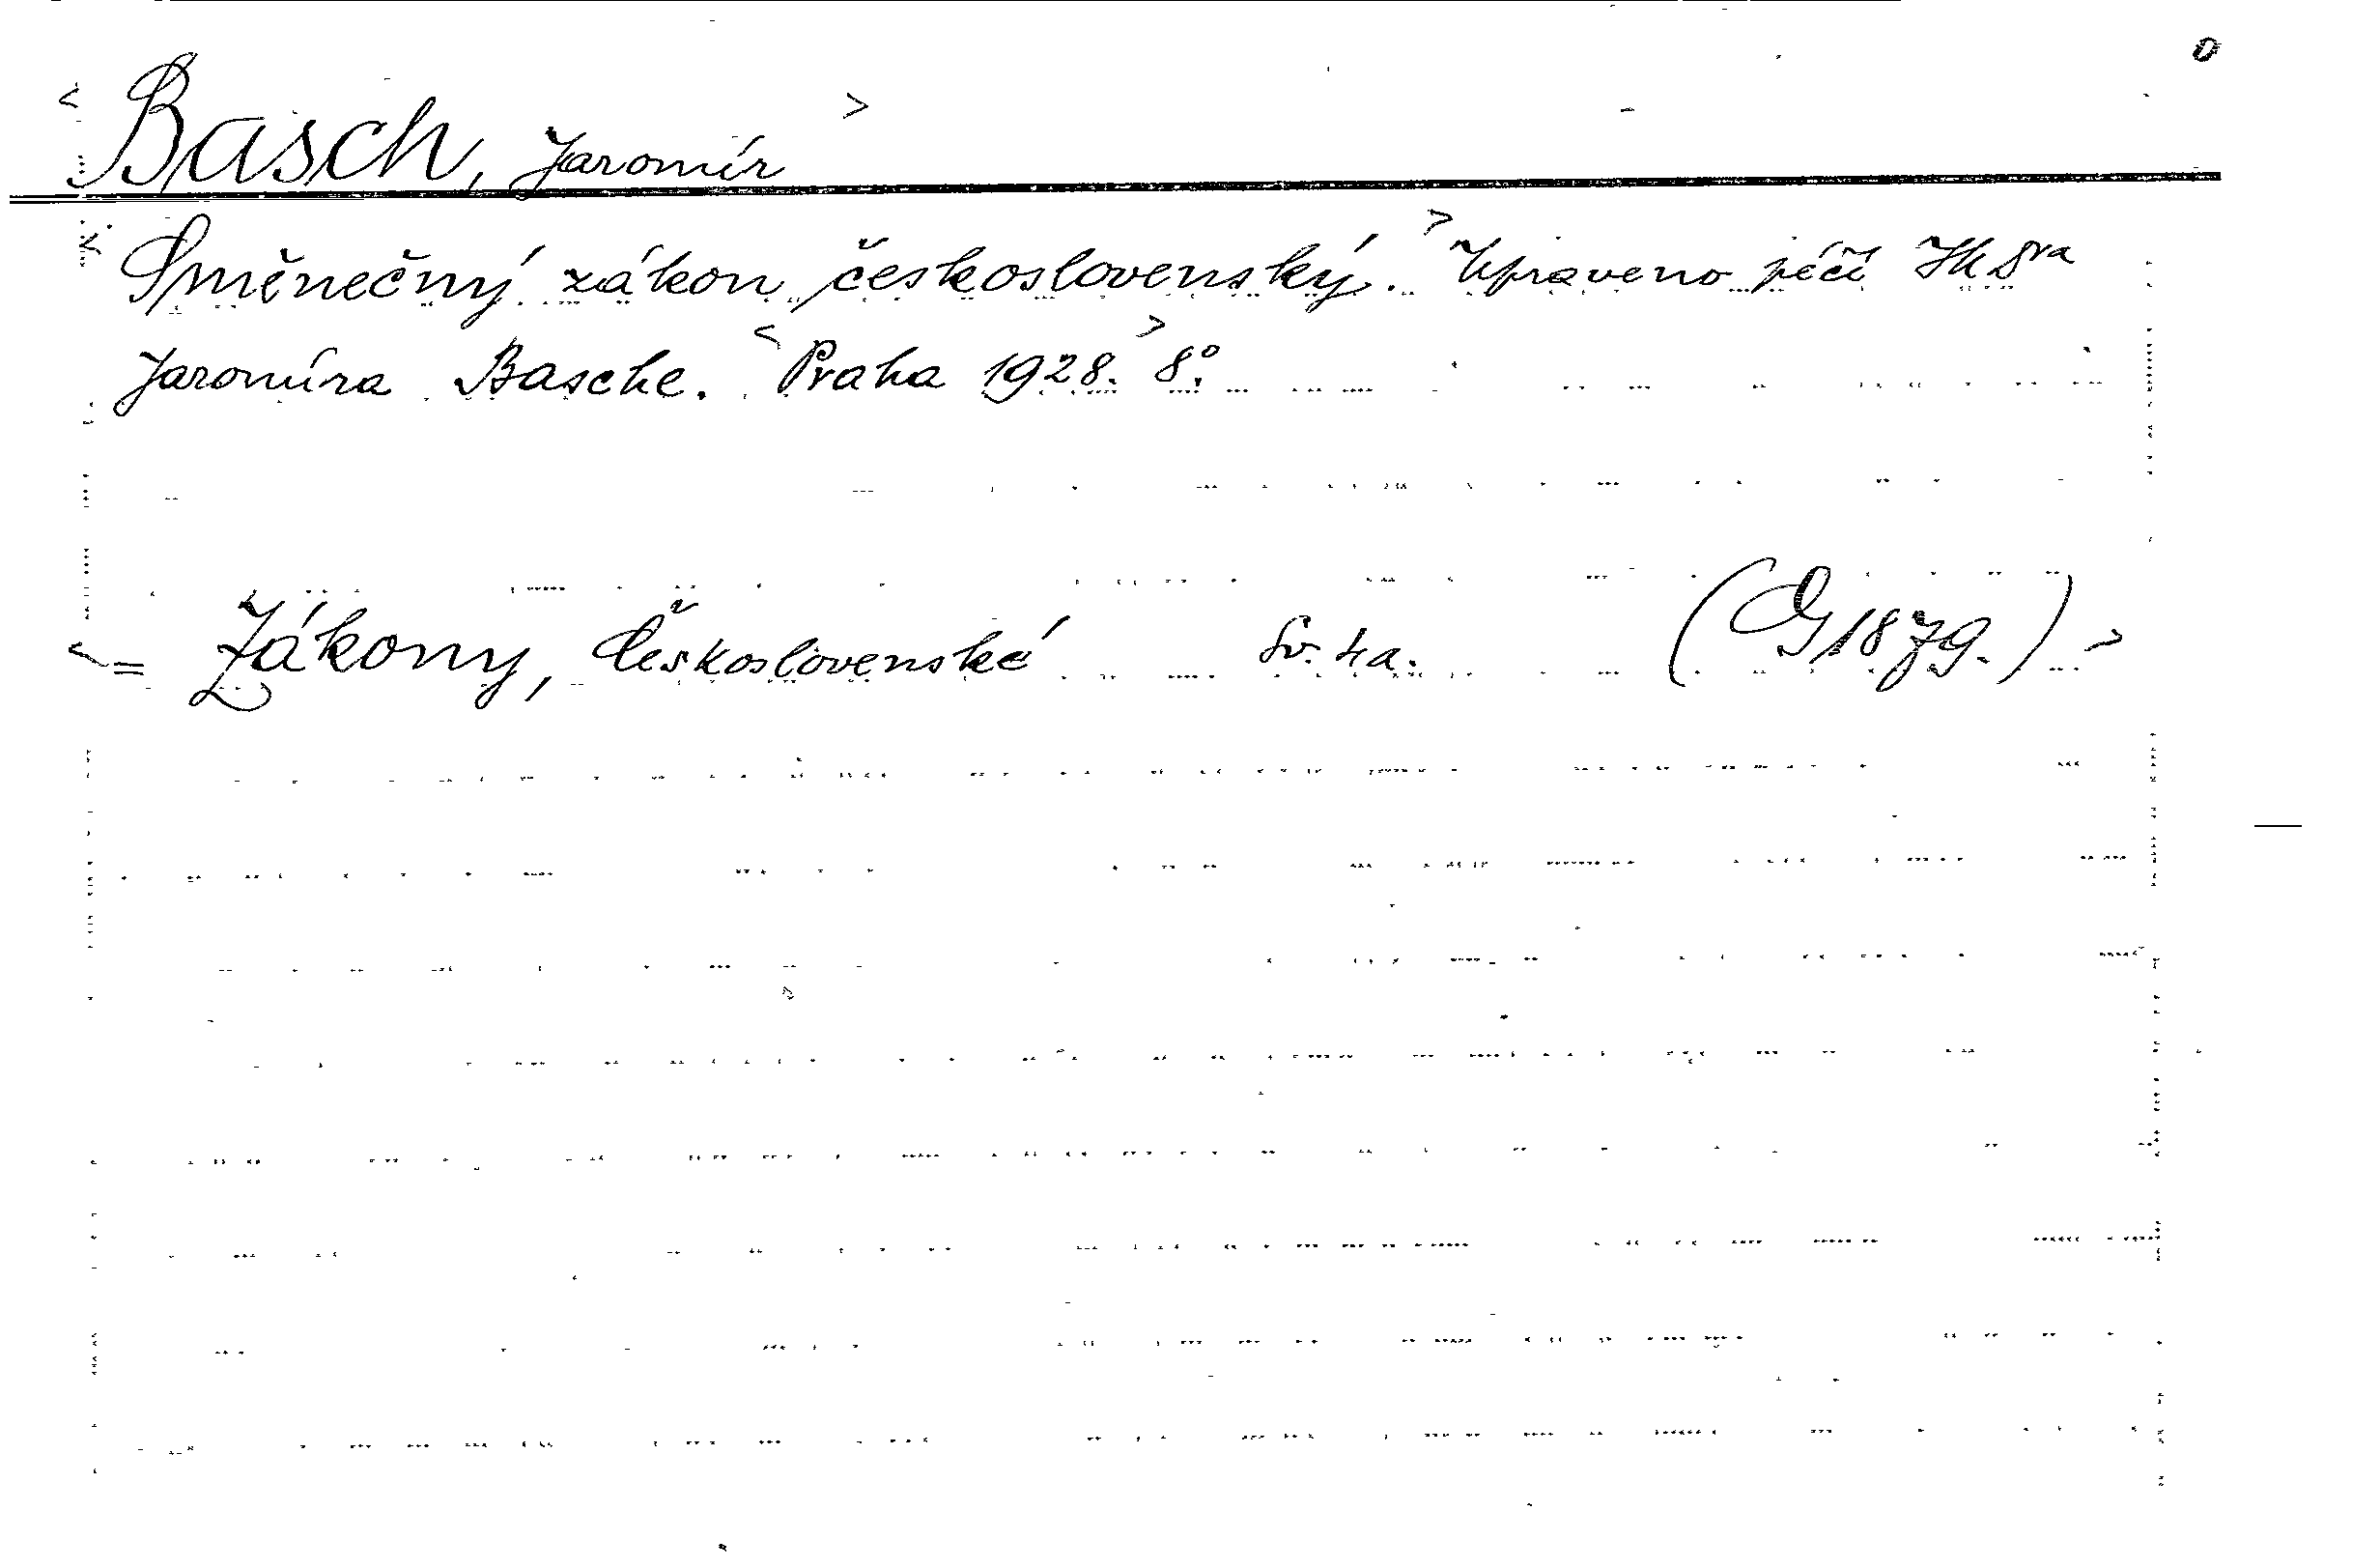 0
< Basch, Jaromír >
< Směnečný zákon československý. > Upraveno péčí JUDra
Jaromíra Basche. < Praha 1928. > 8°.
< = Zákony, Československé Sv. 4a. (G 1879.) >